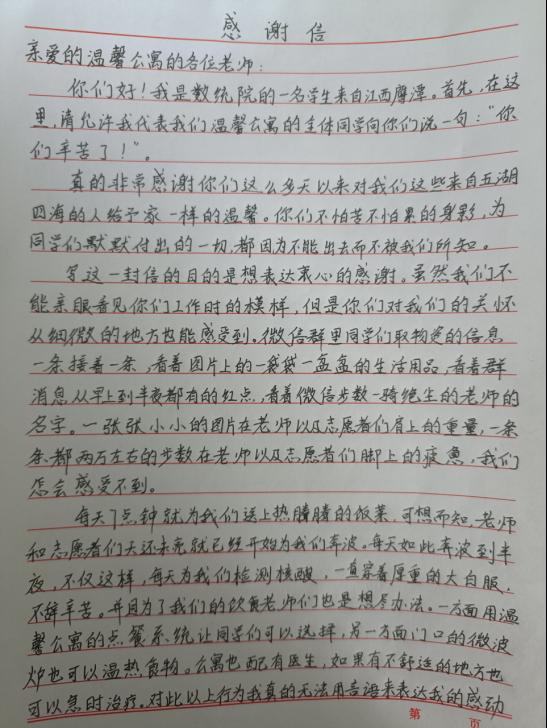 感谢信
亲爱的温馨公寓的各位老师：
你们好！我是数统院的一名学生来自江西鹰潭。首先，在这
里，请允许我代表我们温馨公寓的全体同学向你们说一句："你
们辛苦了！"。
真的非常感谢你们这么多天以来对我们这些来自五湖
四海的人给予家一样的温馨。你们不怕苦不怕累的身影，为
同学们默默付出的一切，都因为不能出去而不被我们所知。
写这一封信的目的是想表达衷心的感谢。虽然我们不
能亲眼看见你们工作时的模样，但是你们对我们的关怀
从细微的地方也能感受到。微信群里同学们取物资的信息
一条接着一条，看着图片上的一袋袋一盒盒的生活用品，看着群
消息从早上到半夜都有的红点，看着微信步数一骑绝尘的老师的
名字。一张张小小的图片在老师以及志愿者们肩上的重量，一条
条都两万左右的步数在老师以及志愿者们脚上的疲惫，我们
怎会感受不到。
每天7点钟就为我们送上热腾腾的饭菜，可想而知，老师
和志愿者们天还未亮就已经开始为我们奔波。每天如此奔波到半
夜，不仅这样，每天为我们检测核酸，一直穿着厚重的大白服，
不辞辛苦。并且为了我们的饮食老师们也是想尽办法。一方面用温
馨公寓的点餐系统让同学们可以选择，另一方面门口的微波
炉也可以温热食物。公寓也配有医生，如果有不舒适的地方也
可以急时治疗。对此以上行为我真的无法用言语来表达我的感动
第 页